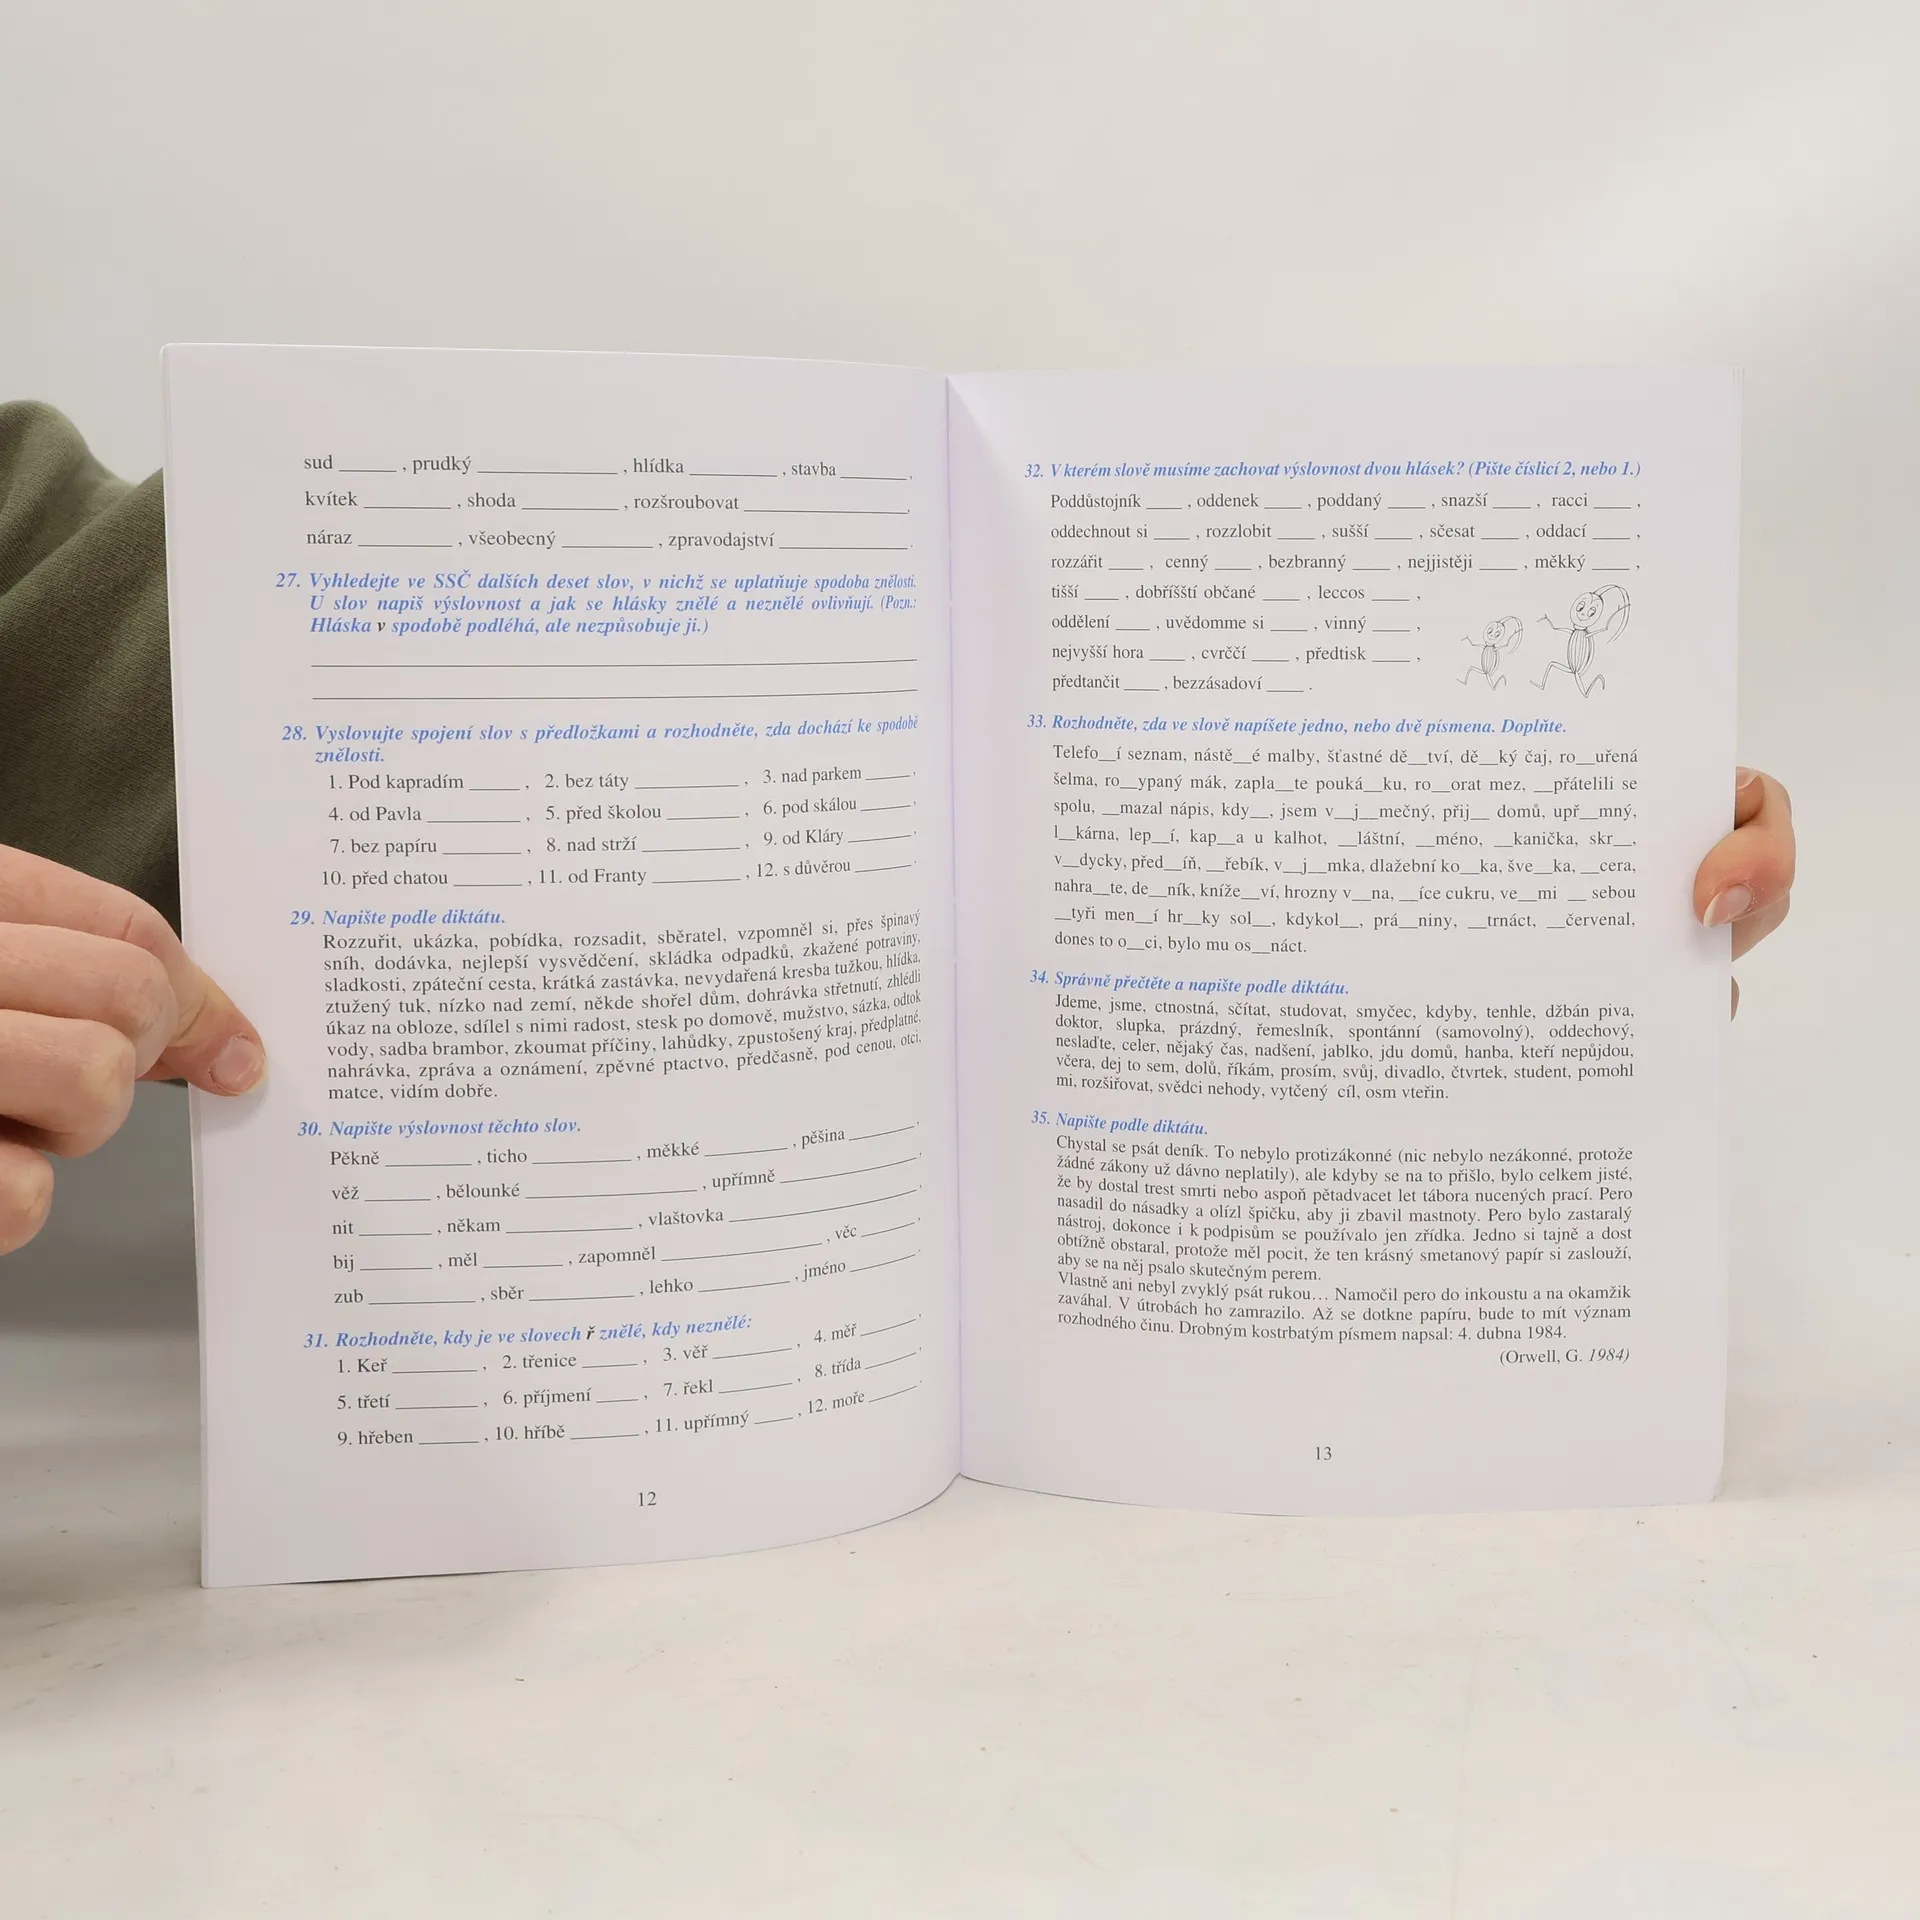 sud ______ , prudký ______________ , hlídka _________ , stavba _______ ,
kvítek _________ , shoda __________ , rozšroubovat _________________ ,
náraz __________ , všeobecný _________ , zpravodajství _____________ .
27. Vyhledejte ve SSČ dalších deset slov, v nichž se uplatňuje spodoba znělosti.
U slov napiš výslovnost a jak se hlásky znělé a neznělé ovlivňují. (Pozn.:
Hláska v spodobě podléhá, ale nezpůsobuje ji.)
28. Vyslovujte spojení slov s předložkami a rozhodněte, zda dochází ke spodobě
znělosti.
1. Pod kapradím _____ , 2. bez táty __________ , 3. nad parkem _____ ,
4. od Pavla _________ , 5. před školou _______ , 6. pod skálou _____ ,
7. bez papíru ________ , 8. nad strží __________ , 9. od Kláry ______ ,
10. před chatou _______ , 11. od Franty _________ , 12. s důvěrou ______ .
29. Napište podle diktátu.
Rozzuřit, ukázka, pobídka, rozsadit, sběratel, vzpomněl si, přes špinavý
sníh, dodávka, nejlepší vysvědčení, skládka odpadků, zkažené potraviny,
sladkosti, zpáteční cesta, krátká zastávka, nevydařená kresba tužkou, hlídka,
ztužený tuk, nízko nad zemí, někde shořel dům, dohrávka střetnutí, zhlédli
úkaz na obloze, sdílel s nimi radost, stesk po domově, mužstvo, sázka, odtok
vody, sadba brambor, zkoumat příčiny, lahůdky, zpustošený kraj, předplatné,
nahrávka, zpráva a oznámení, zpěvné ptactvo, předčasně, pod cenou, otci,
matce, vidím dobře.
30. Napište výslovnost těchto slov.
Pěkně _________ , ticho __________ , měkké ________ , pěšina _______ ,
věž _______ , bělounké _________________ , upřímně ______________ ,
nit ________ , někam _____________ , vlaštovka ___________________ ,
bij ________ , měl ________ , zapomněl ________________ , věc ______ ,
zub ___________ , sběr ___________ , lehko _________ , jméno _______ .
31. Rozhodněte, kdy je ve slovech ř znělé, kdy neznělé:
1. Keř _________ , 2. třenice ______ , 3. věř ________ , 4. měř ______ ,
5. třetí _________ , 6. příjmení ____ , 7. řekl ________ , 8. třída ______ ,
9. hřeben ______ , 10. hříbě _______ , 11. upřímný ____ , 12. moře _____ .
12
32. V kterém slově musíme zachovat výslovnost dvou hlásek? (Pište číslicí 2, nebo 1.)
Poddůstojník ____ , oddenek ____ , poddaný ____ , snazší ____ , racci ____ ,
oddechnout si ____ , rozzlobit ____ , sušší ____ , sčesat ____ , oddací ____ ,
rozzářit ____ , cenný ____ , bezbranný ____ , nejjistěji ____ , měkký ____ ,
tišší ____ , dobříští občané ____ , leccos ____ ,
oddělení ____ , uvědomme si ____ , vinný ____ ,
nejvyšší hora ____ , cvrččí ____ , předtisk ____ ,
předtančit ____ , bezzásadoví ____ .
33. Rozhodněte, zda ve slově napíšete jedno, nebo dvě písmena. Doplňte.
Telefo__í seznam, nástě__é malby, šťastné dě__tví, dě__ký čaj, ro__uřená
šelma, ro__ypaný mák, zapla__te pouká__ku, ro__orat mez, __přátelili se
spolu, __mazal nápis, kdy__, jsem v__j__mečný, přij__ domů, upř__mný,
l__kárna, lep__í, kap__a u kalhot, __láštní, __méno, __kanička, skr__,
v__dycky, před__íň, __řebík, v__j__mka, dlažební ko__ka, šve__ka, __cera,
nahra__te, de__ník, kníže__ví, hrozny v__na, __íce cukru, ve__mi __ sebou
__tyři men__í hr__ky sol__, kdykol__, prá__niny, __trnáct, __červenal,
dones to o__ci, bylo mu os__náct.
34. Správně přečtěte a napište podle diktátu.
Jdeme, jsme, ctnostná, sčítat, studovat, smyčec, kdyby, tenhle, džbán piva,
doktor, slupka, prázdný, řemeslník, spontánní (samovolný), oddechový,
neslaďte, celer, nějaký čas, nadšení, jablko, jdu domů, hanba, kteří nepůjdou,
včera, dej to sem, dolů, říkám, prosím, svůj, divadlo, čtvrtek, student, pomohl
mi, rozšiřovat, svědci nehody, vytčený cíl, osm vteřin.
35. Napište podle diktátu.
Chystal se psát deník. To nebylo protizákonné (nic nebylo nezákonné, protože
žádné zákony už dávno neplatily), ale kdyby se na to přišlo, bylo celkem jisté,
že by dostal trest smrti nebo aspoň pětadvacet let tábora nucených prací. Pero
nasadil do násadky a olízl špičku, aby ji zbavil mastnoty. Pero bylo zastaralý
nástroj, dokonce i k podpisům se používalo jen zřídka. Jedno si tajně a dost
obtížně obstaral, protože měl pocit, že ten krásný smetanový papír si zaslouží,
aby se na něj psalo skutečným perem.
Vlastně ani nebyl zvyklý psát rukou… Namočil pero do inkoustu a na okamžik
zaváhal. V útrobách ho zamrazilo. Až se dotkne papíru, bude to mít význam
rozhodného činu. Drobným kostrbatým písmem napsal: 4. dubna 1984.
(Orwell, G. 1984)
13